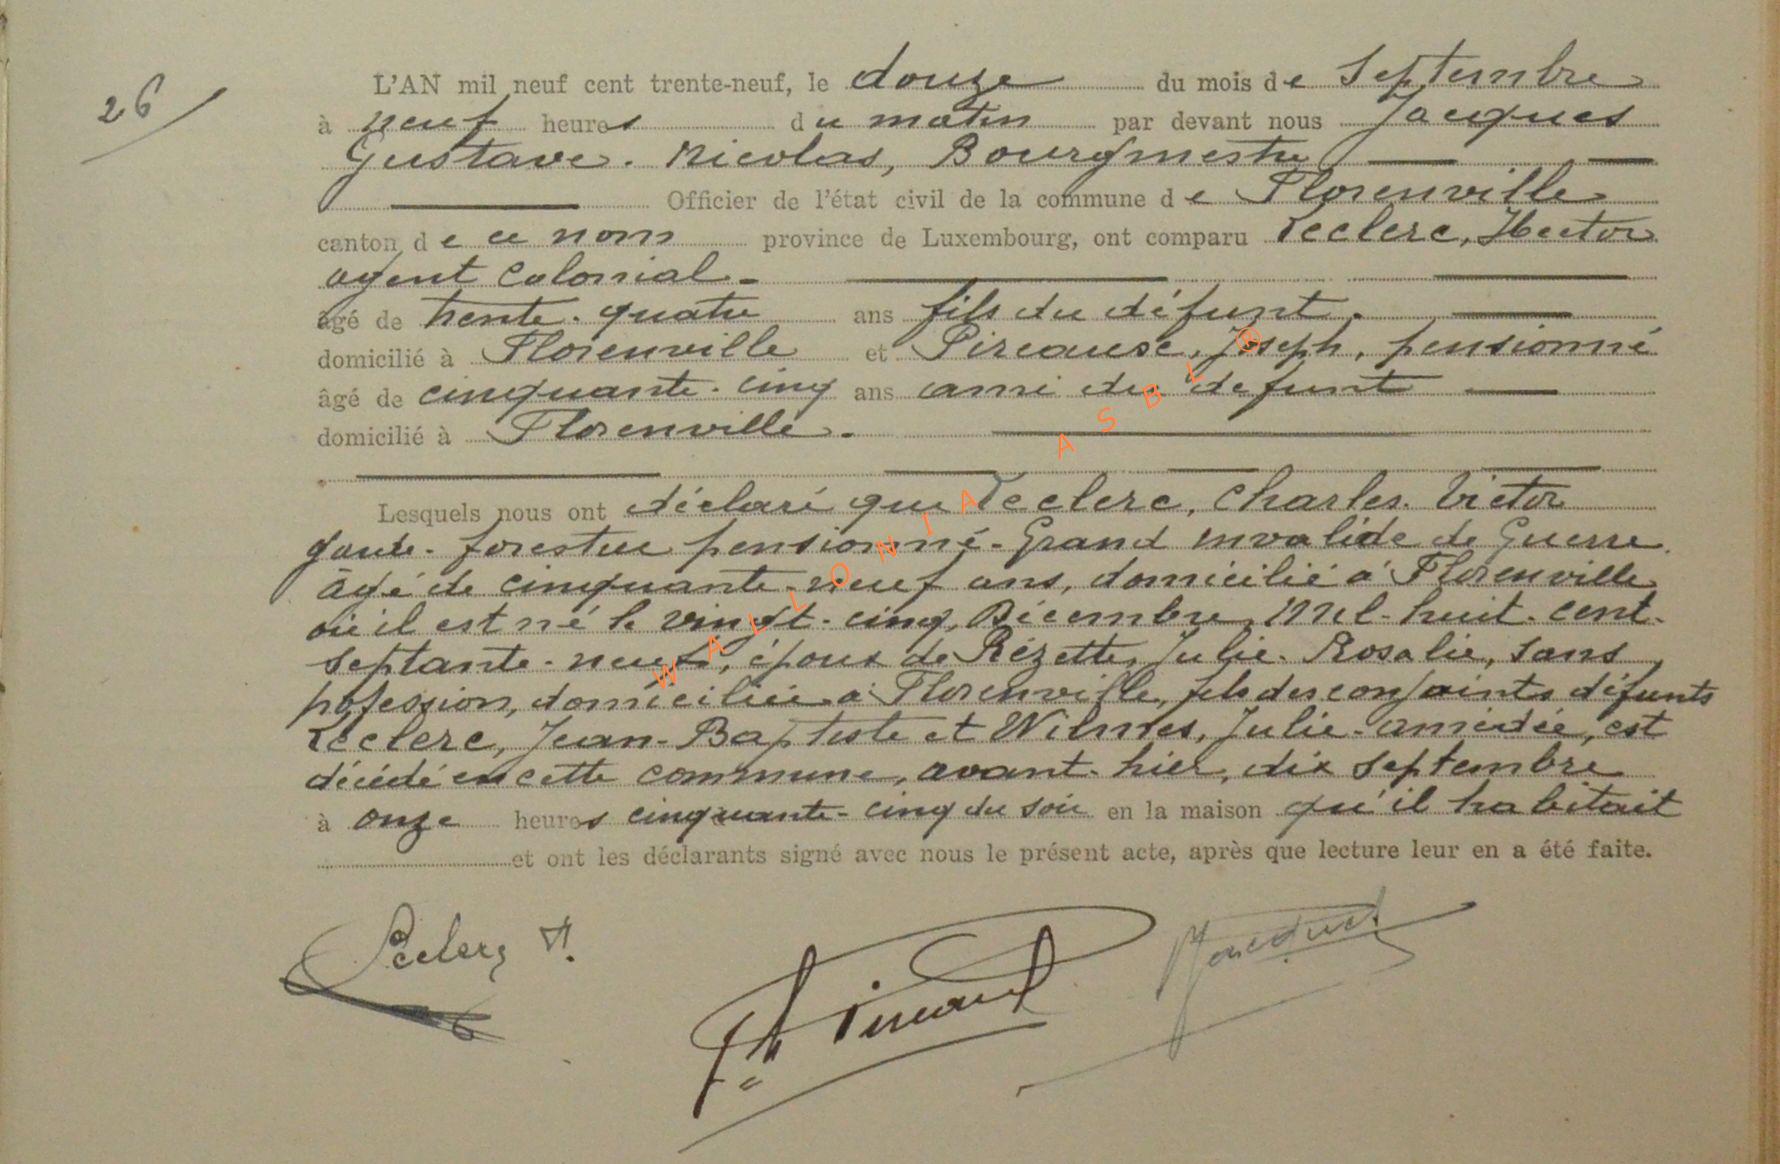 26
L'AN mil neuf cent trente-neuf, le douze du mois de Septembre
à neuf heures du matin par devant nous Jacques
Gustave. Nicolas, Bourgmestre
Officier de l'état civil de la commune de Florenville
canton de ce nom province de Luxembourg, ont comparu Leclerc, Hector
agent colonial -
âgé de trente-quatre ans fils du défunt.
domicilié à Florenville et Joseph, pensionné
âgé de cinquante-cinq ans ami du défunt
domicilié à Florenville.
Lesquels nous ont déclaré que Leclerc, Charles. Victor
garde-forestier pensionné - Grand invalide de Guerre
âgé de cinquante-neuf ans, domicilié à Florenville
où il est né le vingt-cinq Décembre mil-huit-cent-
septante-neuf, époux de Rézette, Julie-Rosalie, sans
profession, domiciliée à Florenville, fils des conjoints défunts
Leclerc, Jean-Baptiste et Wilmes, Julie-Amédée, est
décédé en cette commune, avant-hier, dix septembre
à onze heures cinquante-cinq du soir en la maison qu'il habitait
et ont les déclarants signé avec nous le présent acte, après que lecture leur en a été faite.
Leclerc H.
Jacques
WALLONIA ASBL ®